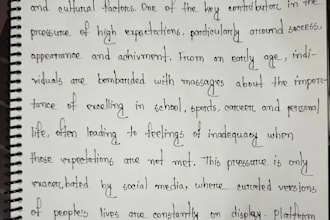 and cultural factors. One of the key contributors in the
pressure of high expectations, particularly around success,
appearance and achivment. From an early age, indi-
viduals are bombarded with massages about the impor-
tance of excelling in school, sports, career and personal
life, often leading to feelings of inadequacy when
those expectations are not met. This pressure is only
exacerbated by social media, where curated versions
of people's lives are constantly on display. Platform